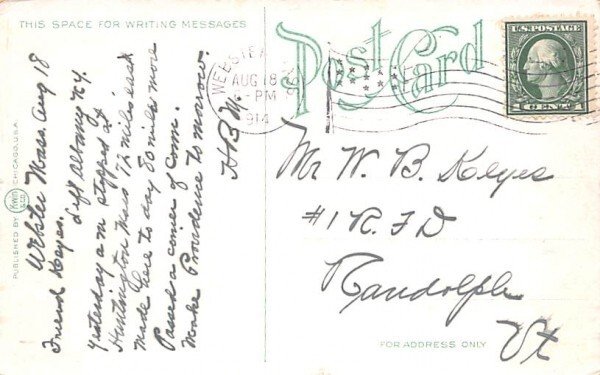 THIS SPACE FOR WRITING MESSAGES
Post Card
U.S. POSTAGE
1 CENT 1
AUG 18
PM
1914
Webster Mass Aug 18
Friend Keyes.
Left Albany N.Y.
yesterday a m stopped at
Huntington Mass 72 miles east
made here to day 80 miles more
Passed a corner of Conn.
Make Providence to morrow.
H B M.
Mr W. B. Keyes
#1 R. F D
Randolph
Vt
FOR ADDRESS ONLY
PUBLISHED BY
CHICAGO, U.S.A.